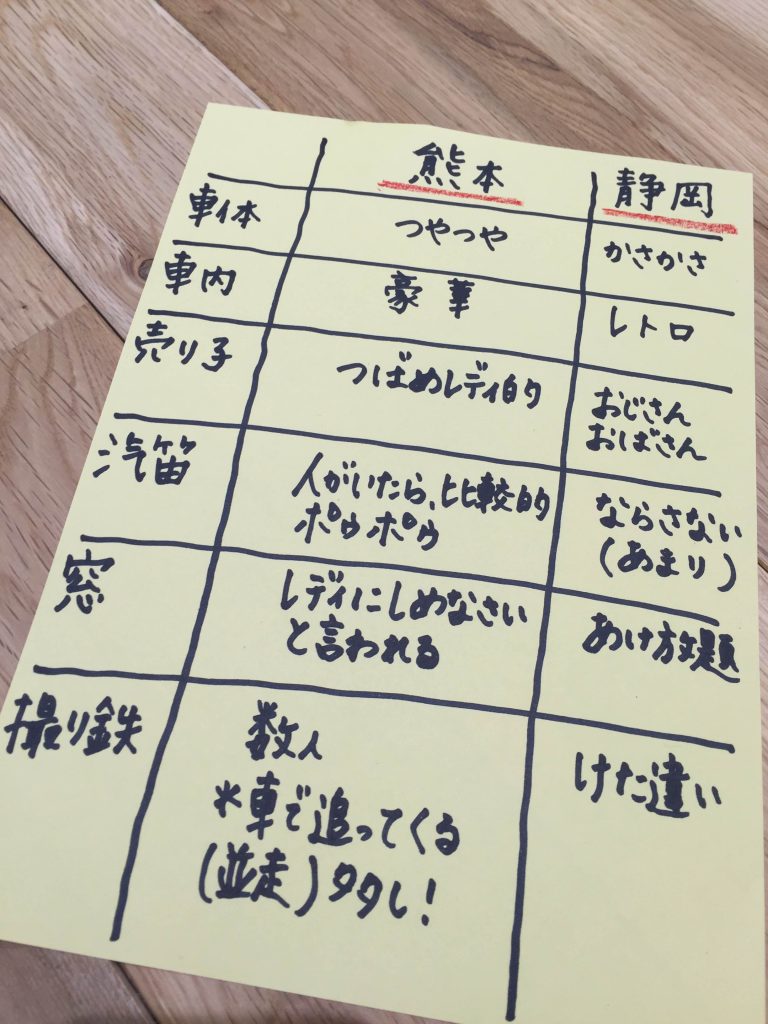 熊本 静岡
車体 つやつや かさかさ
車内 豪華 レトロ
売り子 つばめレディ的 おじさん
おばさん
汽笛 人がいたら、比較的 ならさない
ポゥポゥ (あまり)
窓 レディにしめなさい あけ放題
と言われる
撮り鉄 数人 けた違い
*車で追ってくる
(並走)多し!